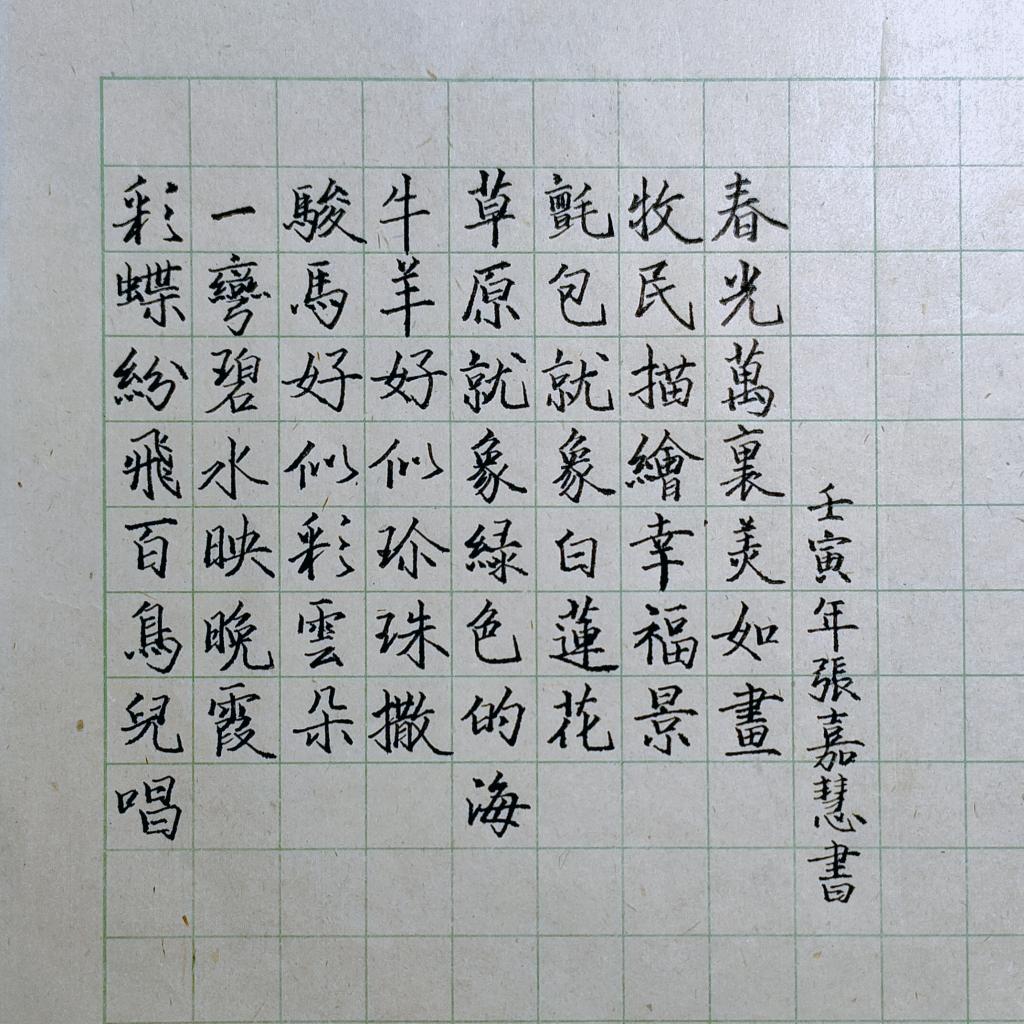 彩蝶紛飛百鳥兒唱
一彎碧水映晚霞
駿馬好似彩雲朵
牛羊好似珍珠撒
草原就象緑色的海
氈包就象白蓮花
牧民描繪幸福景
春光萬裏美如畫
壬寅年張嘉慧書